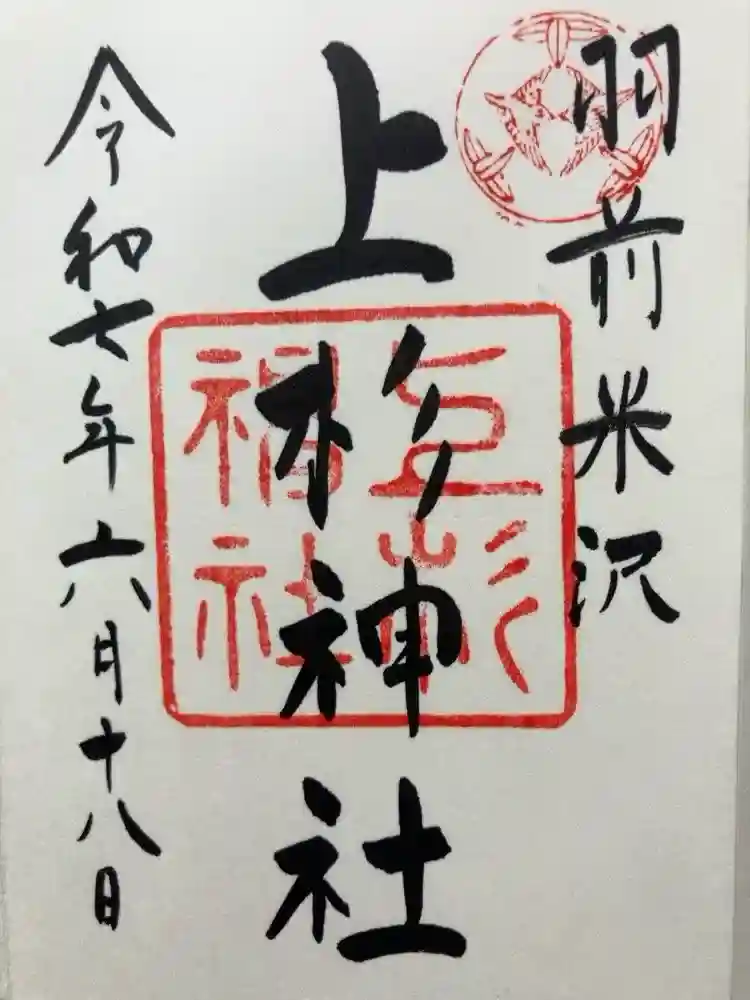 羽前米沢
上杉神社
令和七年六月十八日